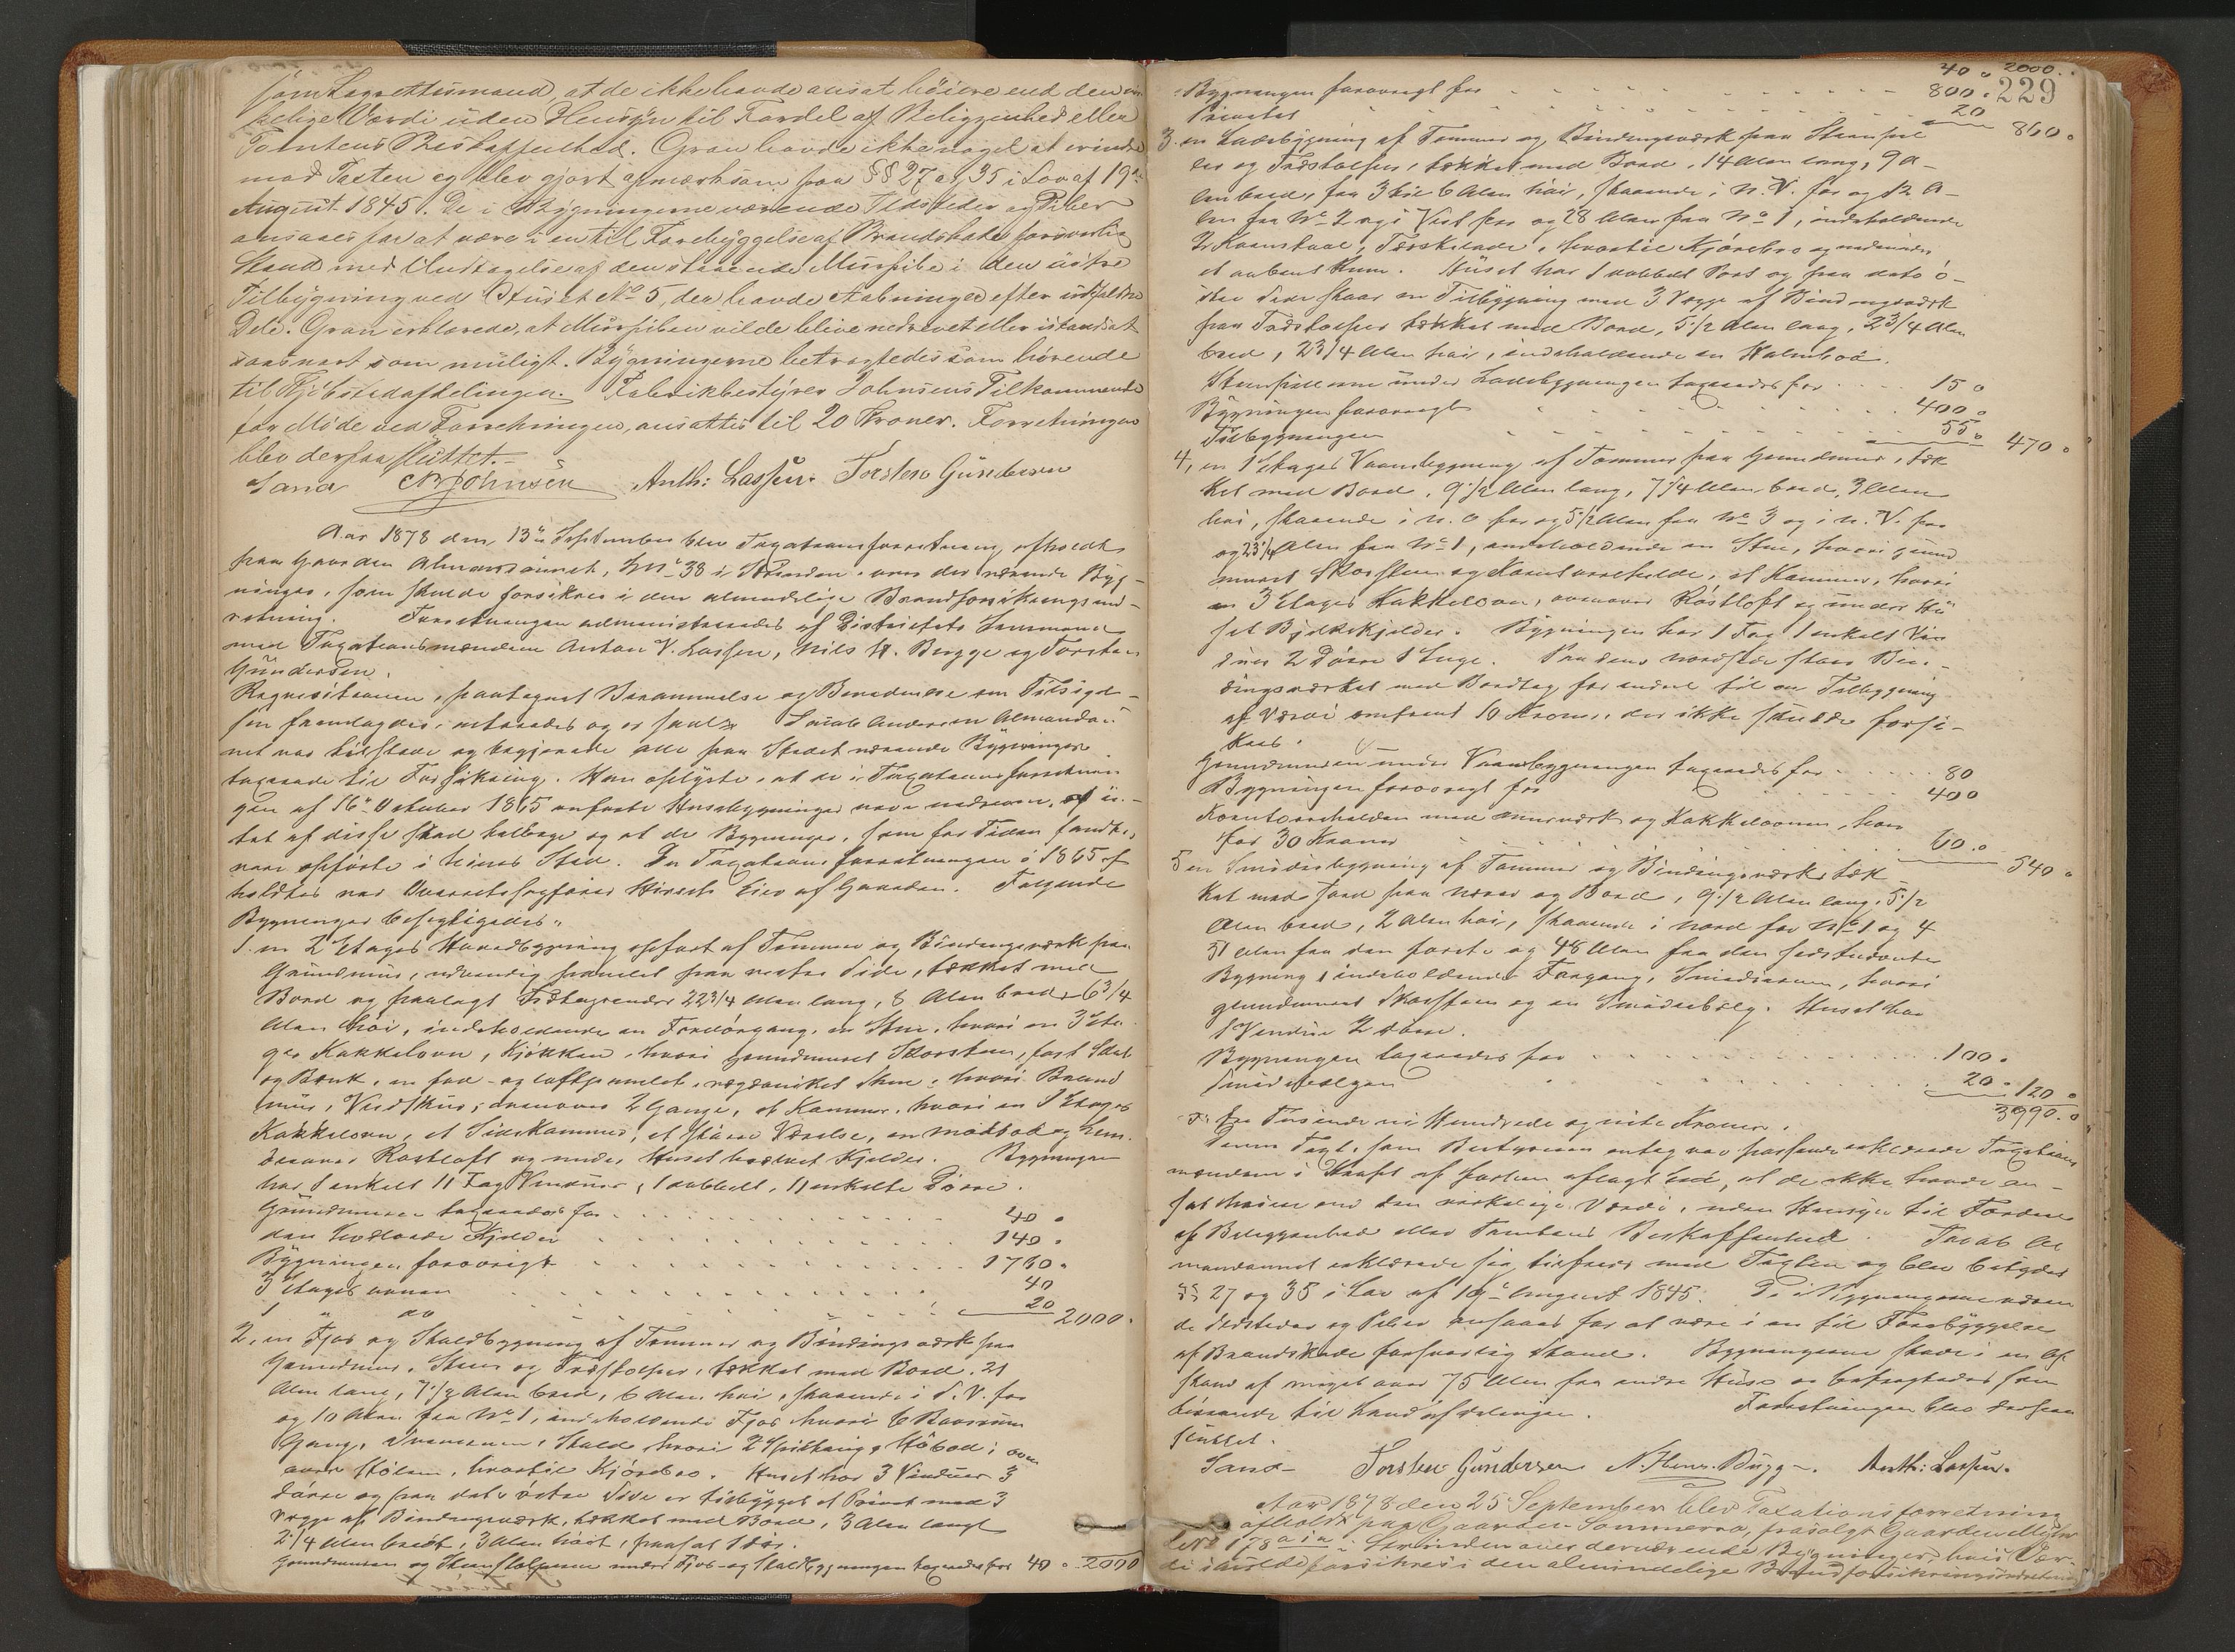 som Lagrettesmænd, at de ikke havde ansat høiere end den vir
kelige Værdi uden Hensyn til Fordel af Beliggenhed eller
Tomtens Beskaffenhed. Gran havde ikke noget at erindre
mod Taxten og blev gjort opmærksom paa §§ 27 og 35 i Lov af 19de
August 1845. De i Bygningerne værende Ildsteder og Piber
ansaaes for at være i en til Forebyggelse af Brandskade forsvarlig
Stand med Undtagelse af den staaende Murpibe i den østre
Tilbygning ved Huset No 5, der havde Aabninger efter udfaldne
Dele. Gran erklærede, at Murpiben vilde blive nedrevet eller istandsat
saasnart som muligt. Bygningerne betragtedes som hørende
til Kjøbstadafdelingen. Fabrikbestyrer Johnsens Tilkommende
for Møde ved Forretningen, ansattes til 20 Kroner. Forretningen
blev derpaa sluttet.
Sand CB Johnsen Anth: Lassen. Torsten Gundersen
Aar 1878 den 13de September blev Taxationsforretning afholdt
paa Gaarden Almandaunet, Mn 33 i Strinden over der værende Byg-
ninger, som skulde forsikres i den almindelige Brandforsikringsind-
retning. Forretningen administreredes af Districtets Lensmand
med Taxationsmændene Anton V. Lassen, Nils H. Bugge og Torsten
Gundersen.
Reqvisitionen, paategnet Berammelse og Benævnelse om Tilsigel-
sen fremlagdes, oplæstes og er saal: Jacob Andersen Almandau-
net var tilstede og begjærede alle paa Stedet værende Bygninger
taxerede til Forsikring. Han oplyste, at de i Taxationsforretnin
gen af 16de October 1865 anførte Husebygninger vare nedrevne,
tet af disse
vare opførte i hines Sted. Da Taxationsforretningen i 1865 af
holdtes var Overretssagfører Hirsch Eier af Gaarden. Følgende
Bygninger besigtigedes:
1. en 2 Etages Hovedbygning opført af Tømmer og Bindingsværk paa
Grundmur, udvendig panelet paa vestre Side, tækket med
Bord og paalagt Trætagrender 22 3/4 Alen lang, 8 Alen bred, 6 3/4
Alen høi, indeholdende en Fordørgang, en Stue, hvori en 3 Eta
ges Kakkelovn, Kjøkken, hvori grundmuret Skorsten, fast Skab
og Bænk, en fod- og loftpanelet, Stue, hvori Brand
mur, Vedskur; ovenover 2 Gange, et Kammer, hvori en 1 Etages
Kakkelovn, et Sidekammer, et større Værelse, en Madbod og
derover Røstloft og under Huset hvælvet Kjelder. Bygningen
har 1 enkelt 11 Fag Vinduer, 1 dobbelt, 11 enkelte Døre.
Grundmuren taxeredes for 40 "
den hvælvede Kjelder 140 "
Bygningen forøvrigt 1760 "
3 Etages ovnen 40
1 " do 20 2000.
2, en Fjøs og Staldbygning af Tømmer og Bindingsværk paa
Grundmur, Sten og Træstolper, tækket med Bord, 21
Alen lang, 7 1/2 Alen bred, 6 Alen høi, staaende i S. V. for
og 10 Alen fra No 1, indeholdende Fjøs hvori 6 Baasrum
Gang, Stald hvori 2 Spiltaug, Høbod; oven
over Stølen, hvortil Kjørebro. Huset har 3 Vinduer 3
Døre og paa dets østre Side er tilbygget et Privet med 3
Vægge af Bindingsværk, tækket med Bord, 3 Alen langt
2 1/4 Alen bredt, 3 Alen høit, 1 Dør.
Grundmuren og Stenstolperne under Fjøs- og Staldbygningen taxeredes for 40 " 2000
229
40 " 2000.
Bygningen forøvrigt for 800 "
Privetet 20 860 "
3. en Ladebygning af Tømmer og Bindingsværk paa Stenpil
ler og Træstolper, tækket med Bord, 14 Alen lang, 9 A-
len bred, fra 3 til 6 Alen høi, staaende i N. V. for og 12 A-
len fra No 2 og i Vest for og 28 Alen fra No 1, indeholdende
2 Kornstaal, Tærskelade, hvortil Kjørebro og nedenunder
et aabent Rum. Huset har 1 dobbelt Port og paa dets ø-
stre Side staar en Tilbygning med 3 Vægge af Bindingsværk
paa Træstolper tækket med Bord, 5 1/2 Alen lang, 2 3/4 Alen
bred, 2 3/4 Alen høi, indeholdende en Halmbod.
Stenpillerne under Ladebygningen taxeredes for 15 "
Bygningen forøvrigt 400 "
Tilbygningen 55 " 470 "
4, en 1 Etages Vaaningbygning af Tømmer paa Grundmur, tæk
ket med Bord, 9 1/2 Alen lang, 7 1/4 Alen bred, 3 Alen
høi, staaende i N. O for og 5 1/2 Alen fra No 3 og i N. V. for
og 23 1/4 Alen fra No 1, indeholdende en Stue, hvori grund
muret Skorsten og, et Kammer, hvori
en 3 Etages Kakkelovn, ovenover Røstloft og under Hu
set Bjelkekjelder. Bygningen har 1 Fag 1 enkelt Vin
duer 2 Døre 1 Luge. Paa dens nordside staar Bin-
dingsværket med Bordtag for endel til en Tilbygning
af Værdi omtrent 10 Kroner, der ikke skulde forsi-
kres.
Grundmuren under Vaaningbygningen taxeredes for 80
Bygningen forøvrigt for 400
med murværk og Kakkelovnen, hver
for 30 Kroner 60 " 540 "
5 en Smidiebygning af Tømmer og Bindingsværk, tæk
ket med Jord paa Næver og Bord, 9 1/2 Alen lang, 5 1/2
Alen bred, 2 Alen høi, staaende i Nord for No 1 og 4
51 Alen fra den første og 48 Alen fra den sidstnævnte
Bygning, indeholdende Forgang, Smidierum, hvori
grundmuret Skorsten og en Smidiebælg. Huset har
1 Vindue 2 Døre.
Bygningen taxeredes for 100 "
Smidiebælgen 20 " 120 "
3990 "
Tre Tusinde ni Hundrede og niti Kroner.
Denne Taxt, som Bestyreren antog var passende erklærede Taxations
mændene i Kraft af forhen aflagt Eed, at de ikke havde an-
sat høiere end den virkelige Værdi, uden Hensyn til Fordel
af Beliggenhed eller Tomtens Beskaffenhed. Jacob Al
mandaunet erklærede sig tilfreds med Taxten og blev betydet
§§ 27 og 35 i Lov af 19de August 1845. De i Bygningerne væren
de Ildsteder og Piber ansaaes for at være i en til Forebyggelse
af Brandskade forsvarlig Stand. Bygningerne staar i en Af
stand af meget over 75 Alen fra andre Huse og betragtedes som
hørende til Landafdelingen. Forretningen blev derpaa
sluttet.
Sand Torsten Gundersen N. Henr. Bugge. Anth: Lassen.
Aar 1878 den 25 September blev Taxationsforretning
afholdt paa Gaarden Sommerro, frasolgt Gaarden
No 178 i Strinden over derværende Bygninger, hvis Vær-
di skulde forsikres i den almindelige Brandforsikringsindretning